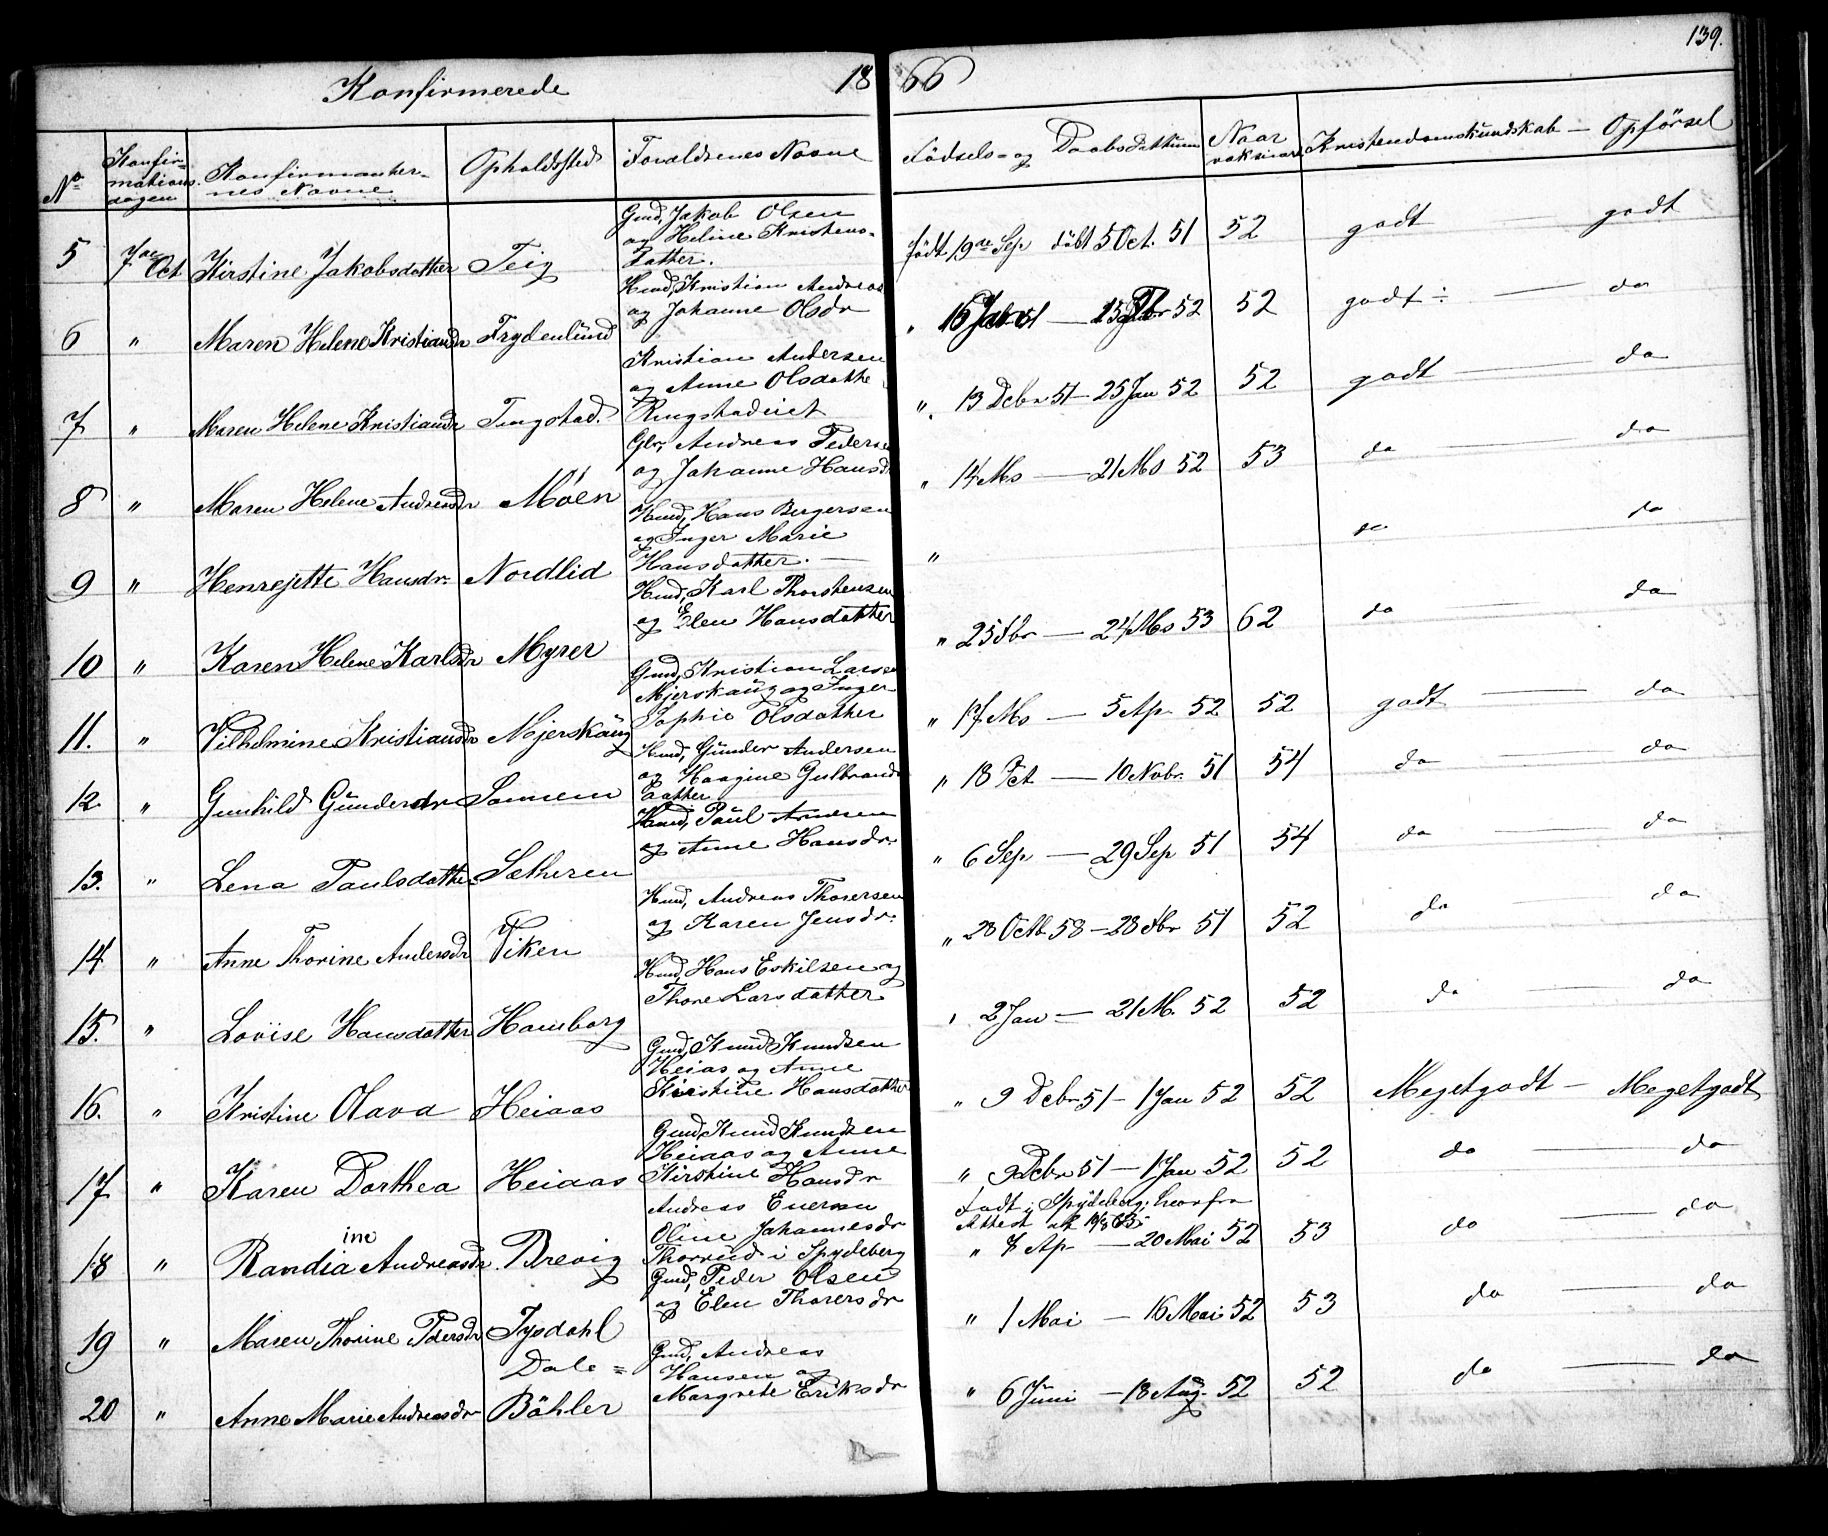 139.
Konfirmerede 1866
No
Konfir-
mations-
dagen
Konfirmanter-
nes Navne
Opholdsted
Forældrenes Navne
Fødsels- og Daabsdatum
Naar
vaksineret
Kristendomskundskab — Opførsel
5 7de Oct Kirstine Jakobsdatter Teig
Gmd, Jakob Olsen
og Heline Kristens-
datter.
født 19de Sep døbt 5 Oct. 51 52 godt — godt
6 " Maren Helene Kristiandr Frydenlund
Hmd, Kristian Andreas
og Johanne Olsdr
" 52 52 godt ÷ — do
7 " Maren Helene Kristiandr Tingstad.
Kristian Andersen
og Anne Olsdatte
Ringstadeiet
" 13 Debr 51 — 25 Jan 52 52 godt — do
8 " Maren Helene Andreasdr Møen
Gbr, Andreas Peders
og Johanne Hansd
" 14 Ms — 21 Ms 52 53 do — do
9 " Henrejette Hansdr Nordlid
Hmd, Hans Bergersen
og Inger Marie
Hansdatter. —
" do do
10 " Karen Helene Karlsdr Myrer
Hmd, Karl Thorstensen
og Elen Hansdatter
" 25 Fbr — 24 Ms 53 62 do — do
11. " Vilhelmine Kristiansdr Mjerskaug
Gmd, Kristian Larse
Mjerskaug og Inger
Sophie Olsdatter
" 17 Ms — 5 Ap 52 52 godt — do
12. " Gunhild Gundersdr Sannem
Hmd, Gunder Andersen
og Haagine Gulbrands
datter
" 18 Oct — 10 Nobr. 51 54 do — do
13. " Lena Paulsdatter Sætheren
Hmd, Paul Arnesen
og Anne Hansdr.
" 6 Sep — 29 Sep 51 54 do — do
14 " Anne Thorine Andersdr Viken
Hmd, Andreas Thorersen
og Karen Jensdr.
" 28 Octb 58 — 28 dbr 51 52 do — do
15. " Lovise Hansdatter Hamborg
Hmd, Hans Eskilsen og
Thore Larsdatter
" 2 Jan — 21 M. 52 52 do — do
16. " Kristine Olava Heiaas
Gmd, Knud Knudsen
Heias og Anne
Kirstine Hansdatter
" 9 Debr 51 — 1 Jan 52 52 Megetgodt — Megetgodt
17 " Karen Dorthea Heiaas
Gmd, Knud Knudsen
Heiaas og Anne
Kirstine Hansdr
" 9 Debr 51 — 1 Jan 52 52 do — do
18 " Randia ine Andreasdr. Brevig
Andreas Enersen
Oline Johannesdr
Thorrud i Spydeberg
Født i Spydeberg; hvorfra
Attest af
" 7 Ap — 20 Mai 52 53 do — do
19 " Maren Thorine Pdersdr Tysdahl
Gmd, Peder Olsen
og Elen Thorersdr
" 1 Mai — 16 Mai 52 53 do — do
20 " Anne Marie Andreasdr Dale =
Bøhler
Gmd, Andreas
Hansen og
Margrete Eriksdr
" 6 Juni — 18 Aug. 52 52 do — do